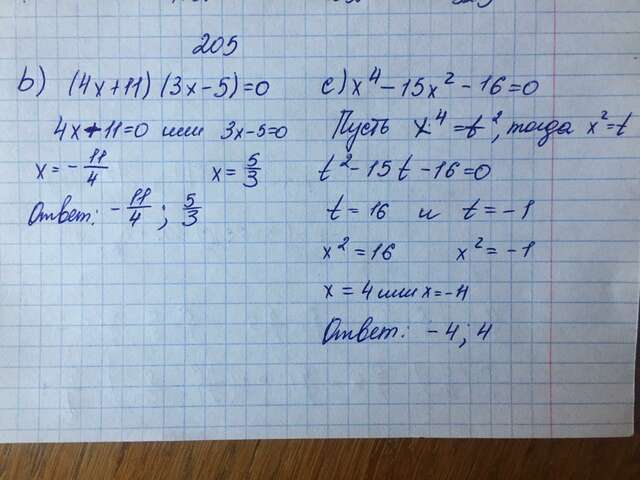 205
b) (4x+11)(3x-5)=0
4x+11=0 или 3x-5=0
x=-11/4 x=5/3
Ответ: -11/4; 5/3
c) x⁴-15x²-16=0
Пусть x⁴=t², тогда x²=t
t²-15t-16=0
t=16 и t=-1
x²=16 x²=-1
x=4 или x=-4
Ответ: -4; 4